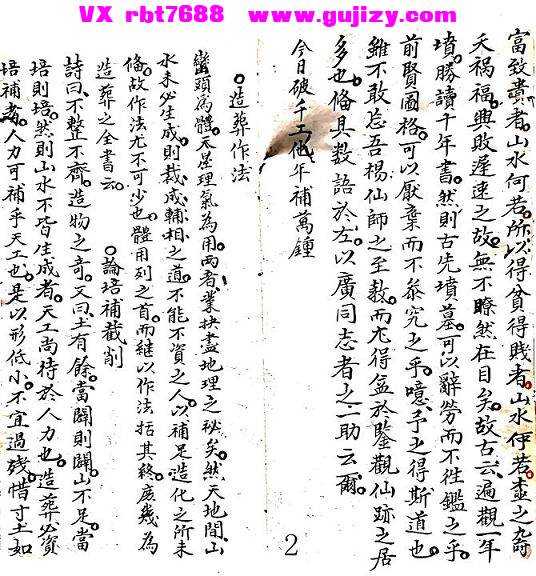 VX rbt7688 www.gujizy.com
富致貴者山水何若所以得貧得賤者山水何若壺之奇
夭禍福興敗遲速之故無不瞭然在目矣故古云遍觀一年
墳勝讀千年書然則古先墳墓可以辭勞而不徃鑑之乎
前賢圖格可以厭棄而不叅究之乎噫予之得斯道也
雖不敢忘吾楊仙師之至教而尤得益於鑒觀仙跡之居
多也偹具数語於左以廣同志者之一助云爾
今日破千工他年補萬鍾
2
造葬作法
巒頭為體天星理氣為用两者業抉盡地理之秘矣然天地間山
水未必生成則裁成輔相之道不能不資之人以補足造化之所未
偹故作法尤不可少也體用列之首而継以作法括其終庶幾為
造葬之全書云
論培補截削
詩曰不整不齊造物之奇又曰土有餘當闢則闢山不足當
培則培然則山水不皆生成者天工尚待於人力也造葬必資
培補者人力可補乎天工也是以形低小不宜過殘惜寸土如